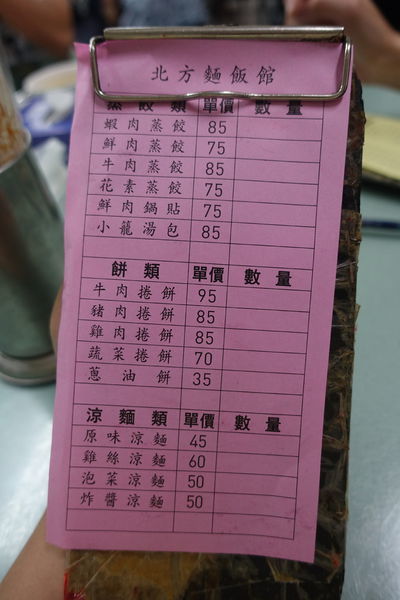 北方麵飯館
蒸餃類 單價 數量
蝦肉蒸餃 85
鮮肉蒸餃 75
牛肉蒸餃 85
花素蒸餃 75
鮮肉鍋貼 75
小籠湯包 85
餅類 單價 數量
牛肉捲餅 95
豬肉捲餅 85
雞肉捲餅 85
蔬菜捲餅 70
蔥油餅 35
涼麵類 單價 數量
原味涼麵 45
雞絲涼麵 60
泡菜涼麵 50
炸醬涼麵 50